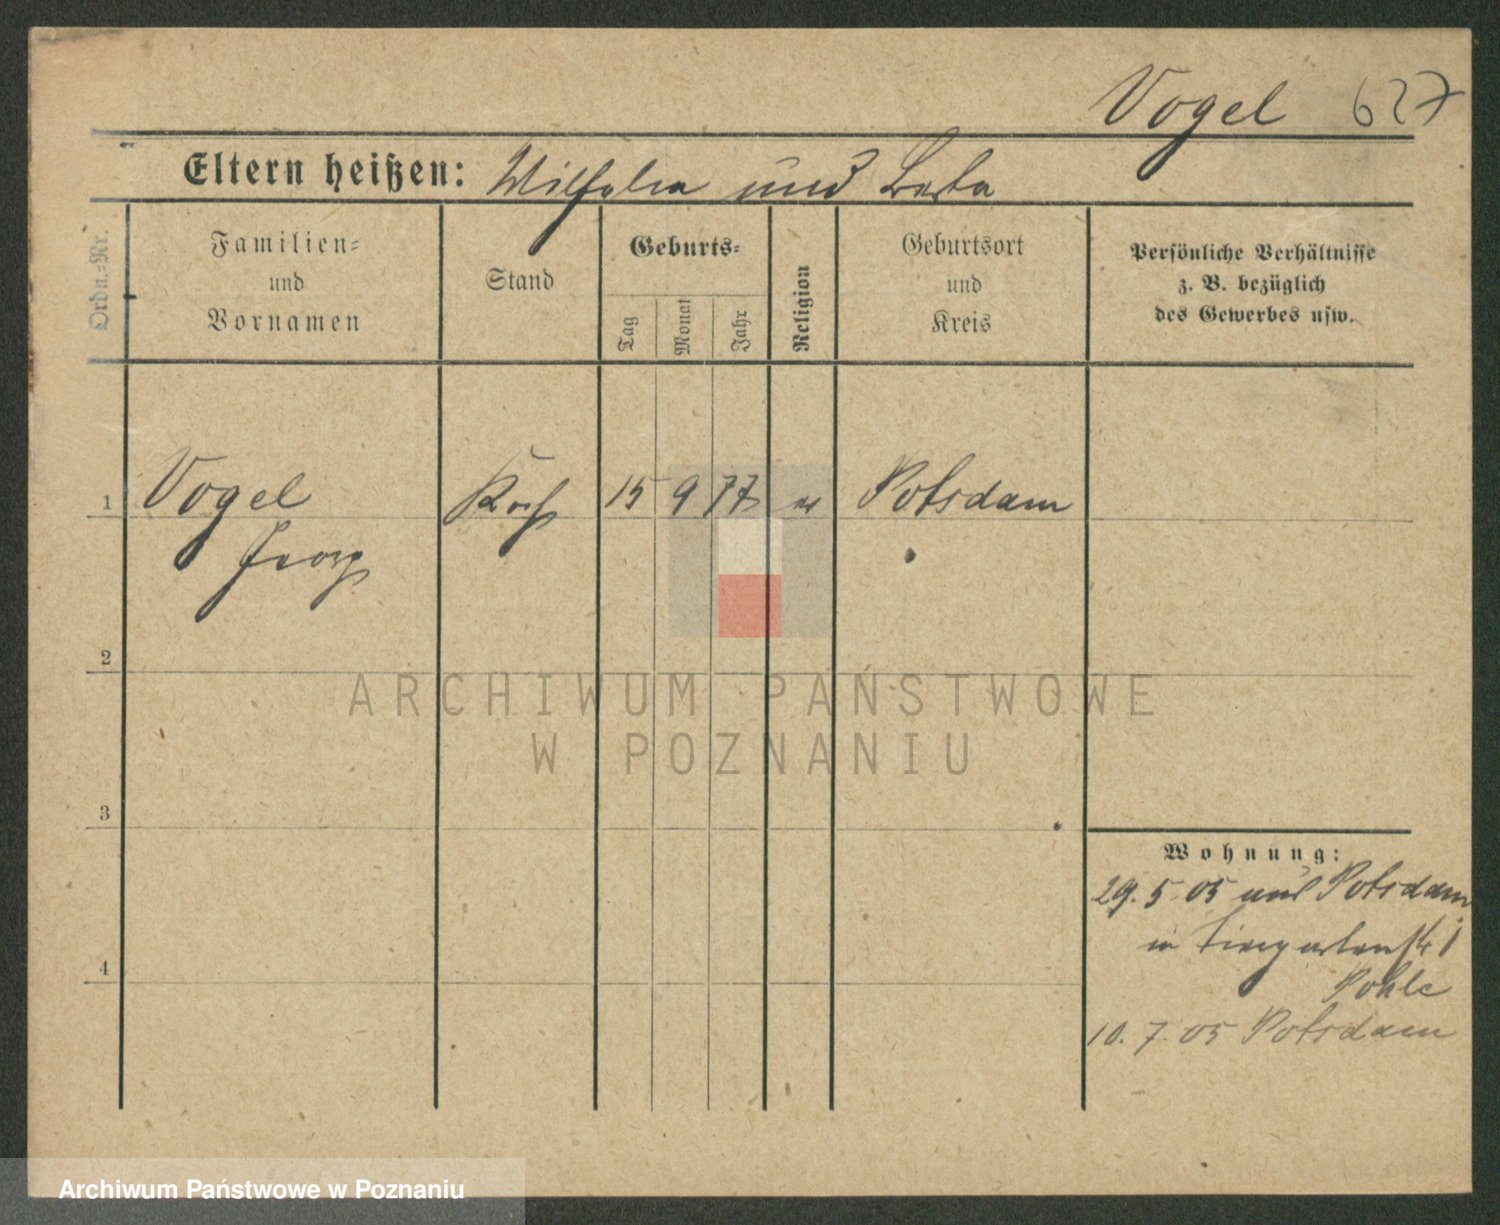 Vogel 627
Eltern heißen: Wilhelm und Berta
Ordn.-Nr.
Familien-
und
Vornamen
Stand
Geburts-
Tag
Monat
Jahr
Religion
Geburtsort
und
Kreis
Persönliche Verhältnisse
z. B. bezüglich
des Gewerbes usw.
1 Vogel Koch 15 9 77 ev Potsdam
Georg
2
3
4
Wohnung:
29. 5 05 aus Potsdam
in Tiergartenstr 1
Pohle
10. 7. 05 Potsdam
ARCHIWUM PAŃSTWOWE
W POZNANIU
Archiwum Państwowe w Poznaniu